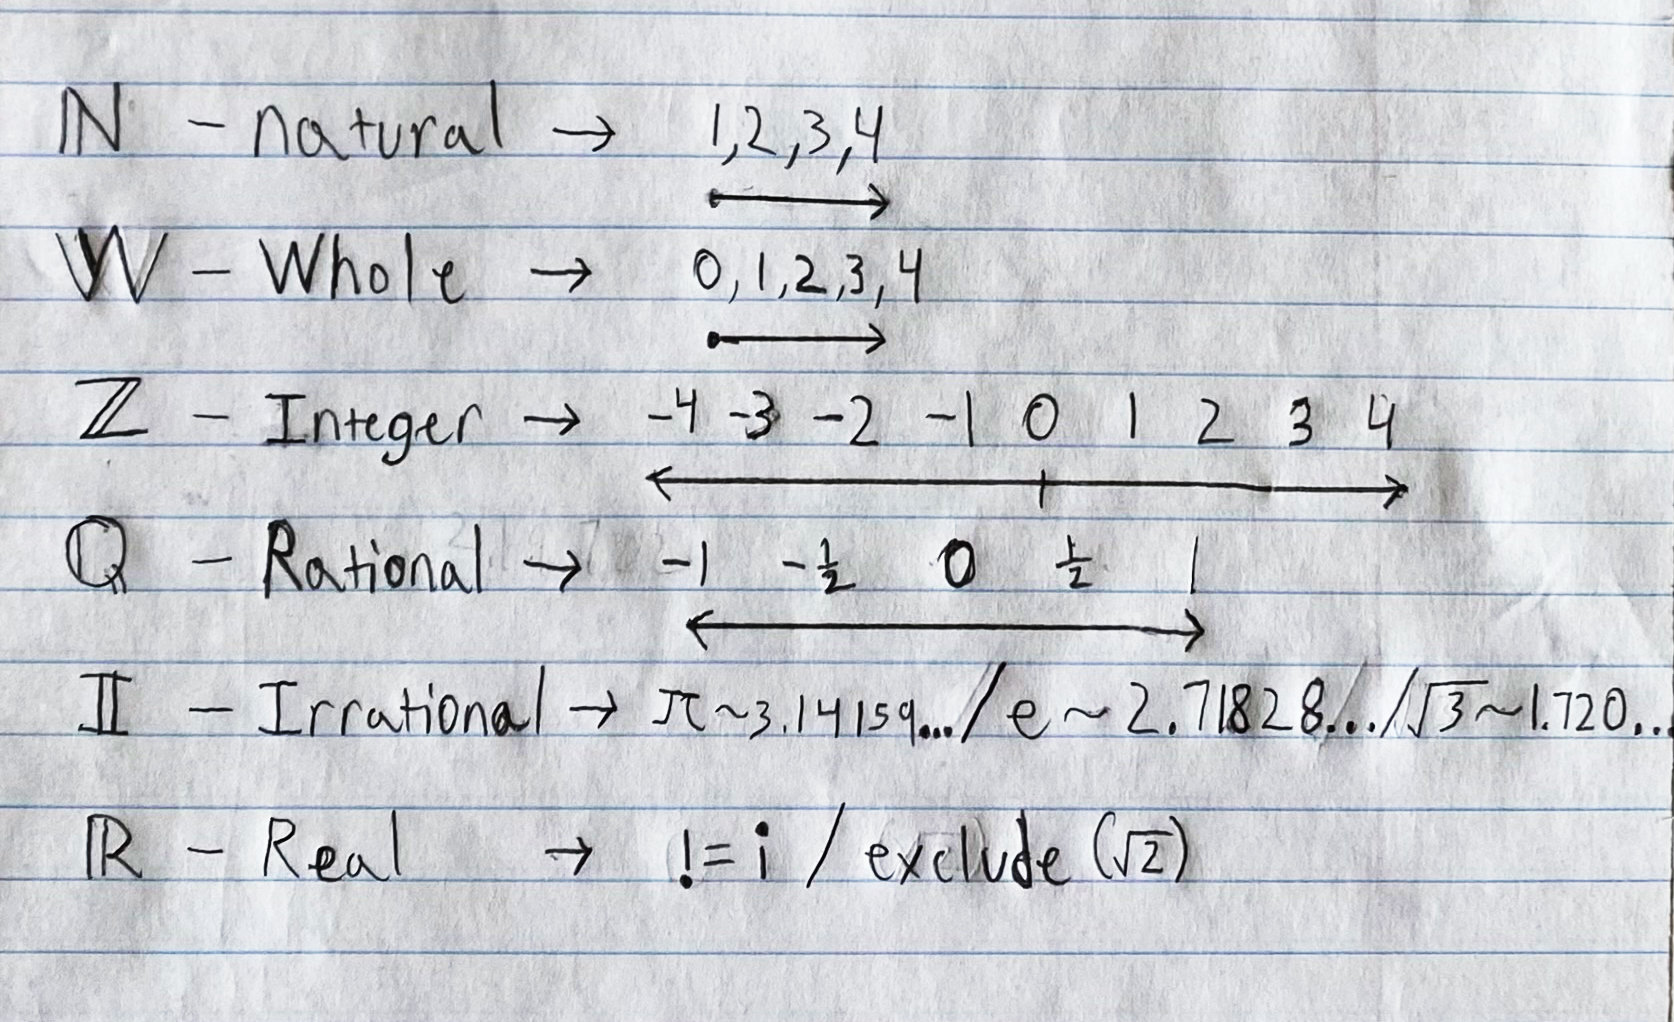 ℕ - natural → 1,2,3,4
𝕎 - Whole → 0,1,2,3,4
ℤ - Integer → -4 -3 -2 -1 0 1 2 3 4
ℚ - Rational → -1 -½ 0 ½ 1
𝕀 - Irrational → π ~ 3.14159... / e ~ 2.71828... / √3 ~ 1.720...
ℝ - Real → != i / exclude (√2)